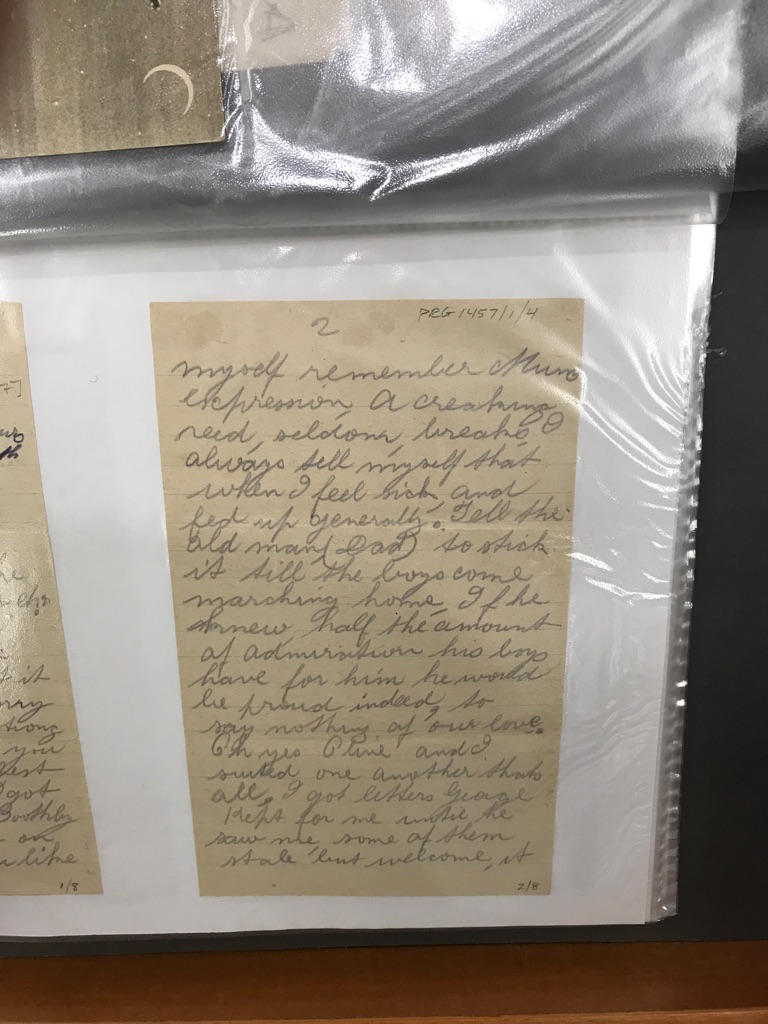 PRG 1457/1/4
2
myself remember Mums
expression, A creaking
reed, seldom, breaks, I
always tell myself that
when I feel sick, and
fed up generally. Tell the
old man (Dad) to stick
it till the boys come
marching home, If he
knew, half the amount
of admiration his boys
have for him he would
be proud indeed, to
say nothing of our love.
Oh yes Olive and I
suited one another thats
all, I got letters George
kept for me until he
saw me, some of them
stale but welcome, it
2/8
he
it
you
got
Boothby
on
like
1/8